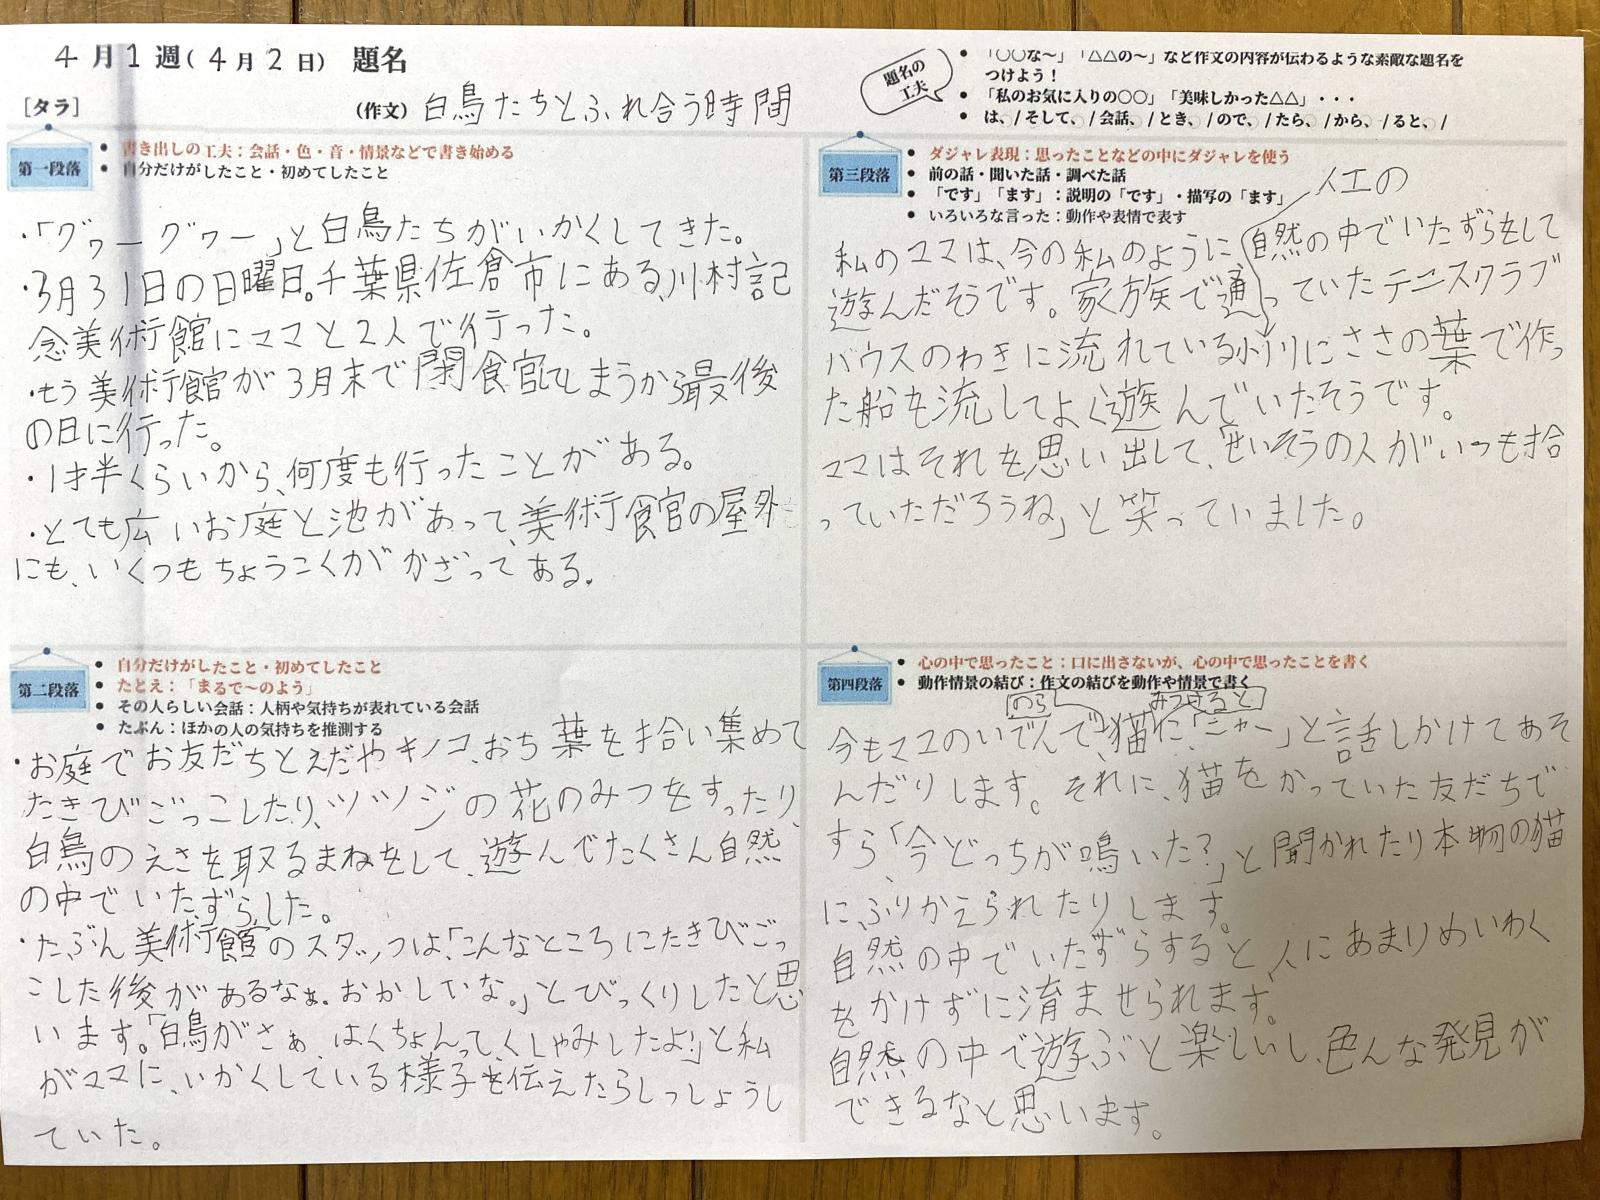 4月1週(4月2日) 題名
[タラ]
(作文) 白鳥たちとふれ合う時間
題名の
工夫
• 「○○な〜」「△△の〜」など作文の内容が伝わるような素敵な題名を
つけよう！
• 「私のお気に入りの○○」「美味しかった△△」・・・
• は、/ そして、/ 会話、/ とき、/ ので、/ たら、/ から、/ ると、/
第一段落
• 書き出しの工夫：会話・色・音・情景などで書き始める
• 自分だけがしたこと・初めてしたこと
・「グゥーグヮー」と白鳥たちがいかくしてきた。
・3月31日の日曜日。千葉県佐倉市にある、川村記
念美術館にママと2人で行った。
・もう美術館が3月末で閉館してしまうから最後
の日に行った。
・1才半くらいから、何度も行ったことがある。
・とても広いお庭と池があって、美術館の屋外
にも、いくつもちょうこくがかざってある。
第二段落
• 自分だけがしたこと・初めてしたこと
• たとえ：「まるで〜のよう」
• その人らしい会話：人柄や気持ちが表れている会話
• たぶん：ほかの人の気持ちを推測する
・お庭でお友だちとえだやキノコ、おち葉を拾い集めて
たきびごっこしたり、ツツジの花のみつをすったり、
白鳥のえさを取るまねをして、遊んでたくさん自然
の中でいたずらした。
・たぶん美術館のスタッフは、「こんなところにたきびごっ
こした後があるなぁ。おかしいな。」とびっくりしたと思
います。「白鳥がさぁ、はくちょんって、くしゃみしたよ！」と私
がママに、いかくしている様子を伝えたらしっしょうし
ていた。
第三段落
• ダジャレ表現：思ったことなどの中にダジャレを使う
• 前の話・聞いた話・調べた話
• 「です」「ます」：説明の「です」・描写の「ます」
• いろいろな言った：動作や表情で表す
人工の
私のママは、今の私のように自然の中でいたずらをして
遊んだそうです。家族で通っていたテニスクラブ
ハウスのわきに流れている小川にささの葉で作っ
た船を流してよく遊んでいたそうです。
ママはそれを思い出して、「せいそうの人がいつも拾
っていただろうね」と笑っていました。
第四段落
• 心の中で思ったこと：口に出さないが、心の中で思ったことを書く
• 動作情景の結び：作文の結びを動作や情景で書く
のら
みつけると
今もママのいでんで、猫に、「ニャー」と話しかけてあそ
んだりします。それに、猫をかっていた友だちで
すら、「今どっちが鳴いた？」と聞かれたり本物の猫
に、ふりかえられたりします。
自然の中でいたずらすると、人にあまりめいわく
をかけずに済ませられます。
自然の中で遊ぶと楽しいし、色んな発見が
できるなと思います。